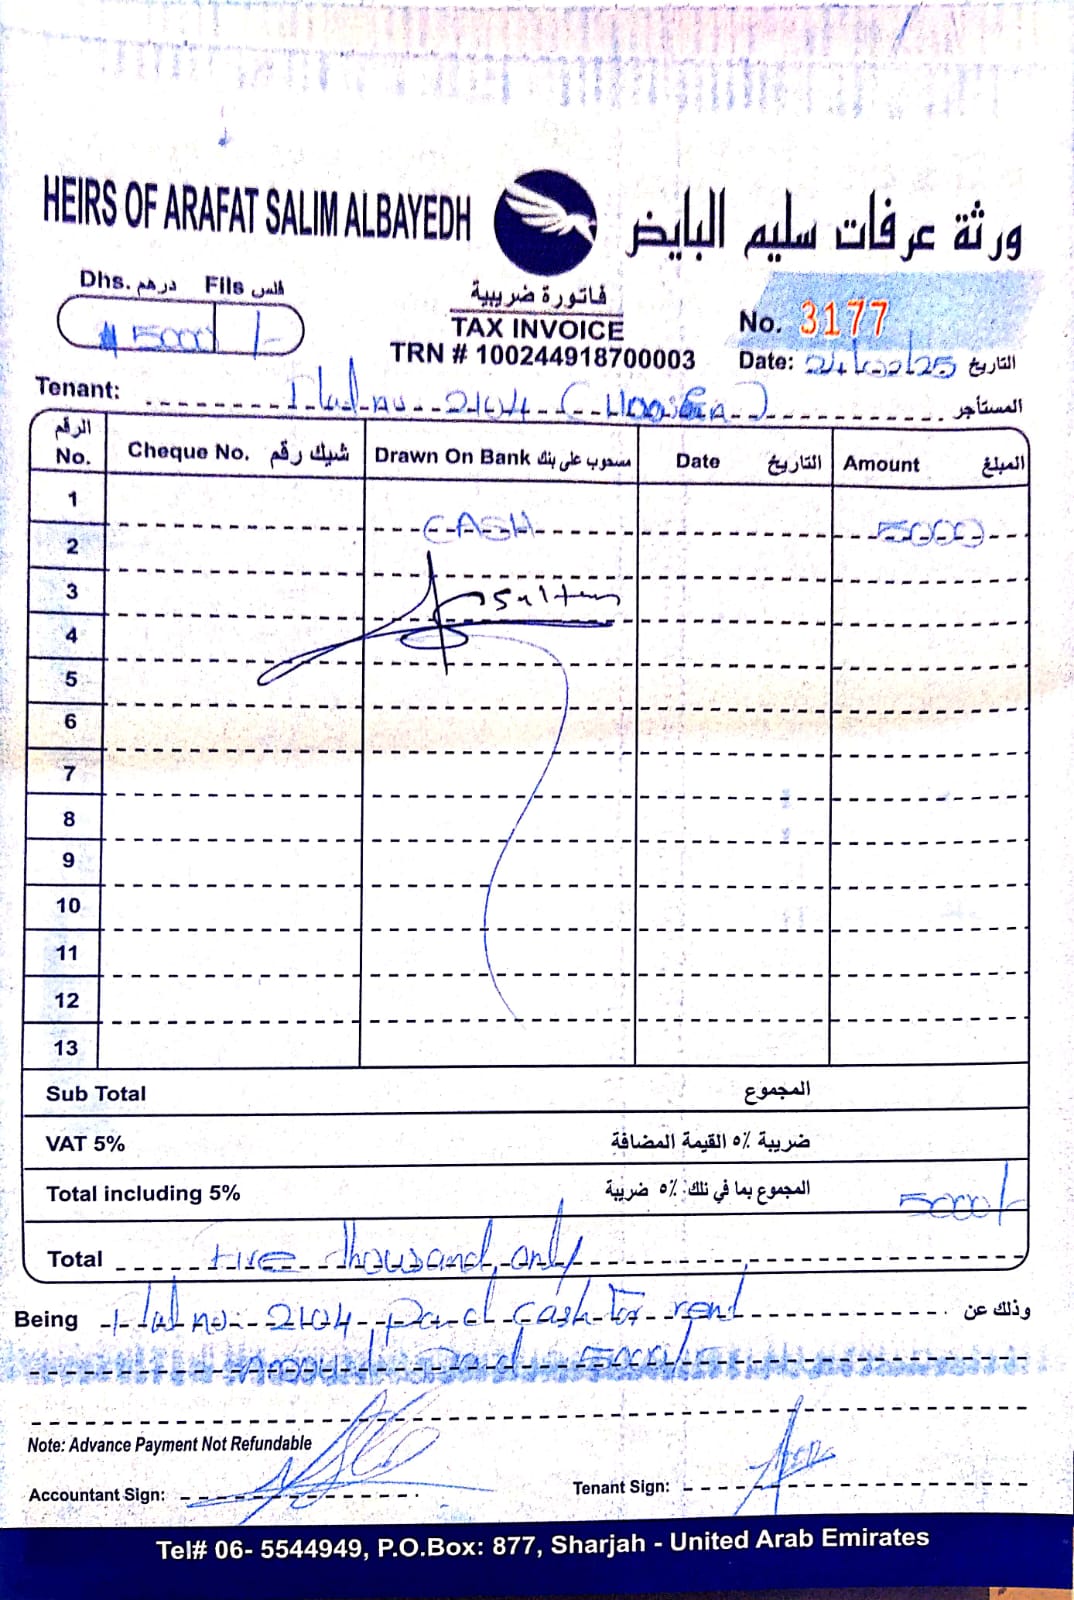 HEIRS OF ARAFAT SALIM ALBAYEDH ورثة عرفات سليم البايض
Dhs. درهم Fils فلس
# 5000 /-
فاتورة ضريبية
TAX INVOICE
TRN # 100244918700003
No. 3177
Date: 24/ /25 التاريخ
Tenant: Flat no 2104 المستأجر
الرقم No. Cheque No. شيك رقم Drawn On Bank مسحوب على بنك Date التاريخ Amount المبلغ
1 CASH 5000
2
3
4
5
6
7
8
9
10
11
12
13
Sub Total المجموع
VAT 5% ضريبة ٥٪ القيمة المضافة
Total including 5% المجموع بما في ذلك ٥٪ ضريبة 5000/-
Total Five thousand only
Being Flat no: 2104 paid cash for rent وذلك عن
Amount Paid 5000/-
Note: Advance Payment Not Refundable
Accountant Sign:
Tenant Sign:
Tel# 06- 5544949, P.O.Box: 877, Sharjah - United Arab Emirates